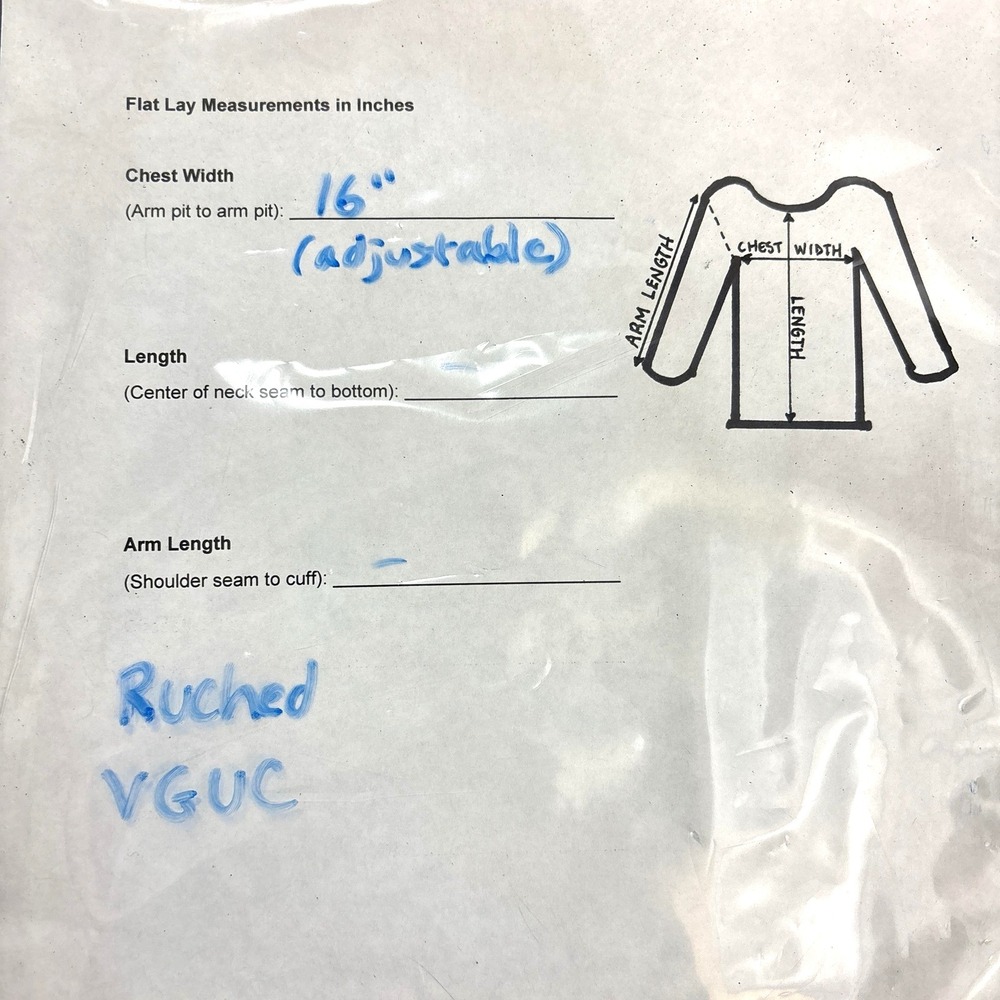 Flat Lay Measurements in Inches
Chest Width
(Arm pit to arm pit): 16"
(adjustable)
ARM LENGTH
CHEST WIDTH
LENGTH
Length
(Center of neck seam to bottom): -
Arm Length
(Shoulder seam to cuff): -
Ruched
VGUC